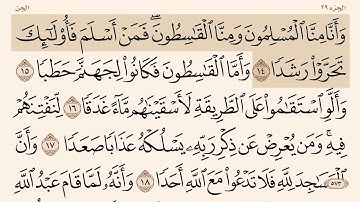 الجزء ٢٩ الجن
وَأَنَّا مِنَّا ٱلْمُسْلِمُونَ وَمِنَّا ٱلْقَـٰسِطُونَۖ فَمَنْ أَسْلَمَ فَأُو۟لَـٰٓئِكَ
تَحَرَّوْا۟ رَشَدًا ١٤ وَأَمَّا ٱلْقَـٰسِطُونَ فَكَانُوا۟ لِجَهَنَّمَ حَطَبًا ١٥
وَأَلَّوِ ٱسْتَقَـٰمُوا۟ عَلَى ٱلطَّرِيقَةِ لَأَسْقَيْنَـٰهُم مَّآءً غَدَقًا ١٦ لِّنَفْتِنَهُمْ
فِيهِۚ وَمَن يُعْرِضْ عَن ذِكْرِ رَبِّهِۦ يَسْلُكْهُ عَذَابًا صَعَدًا ١٧ وَأَنَّ
ٱلْمَسَـٰجِدَ لِلَّهِ فَلَا تَدْعُوا۟ مَعَ ٱللَّهِ أَحَدًا ١٨ وَأَنَّهُۥ لَمَّا قَامَ عَبْدُ ٱللَّهِ
٥٧٣